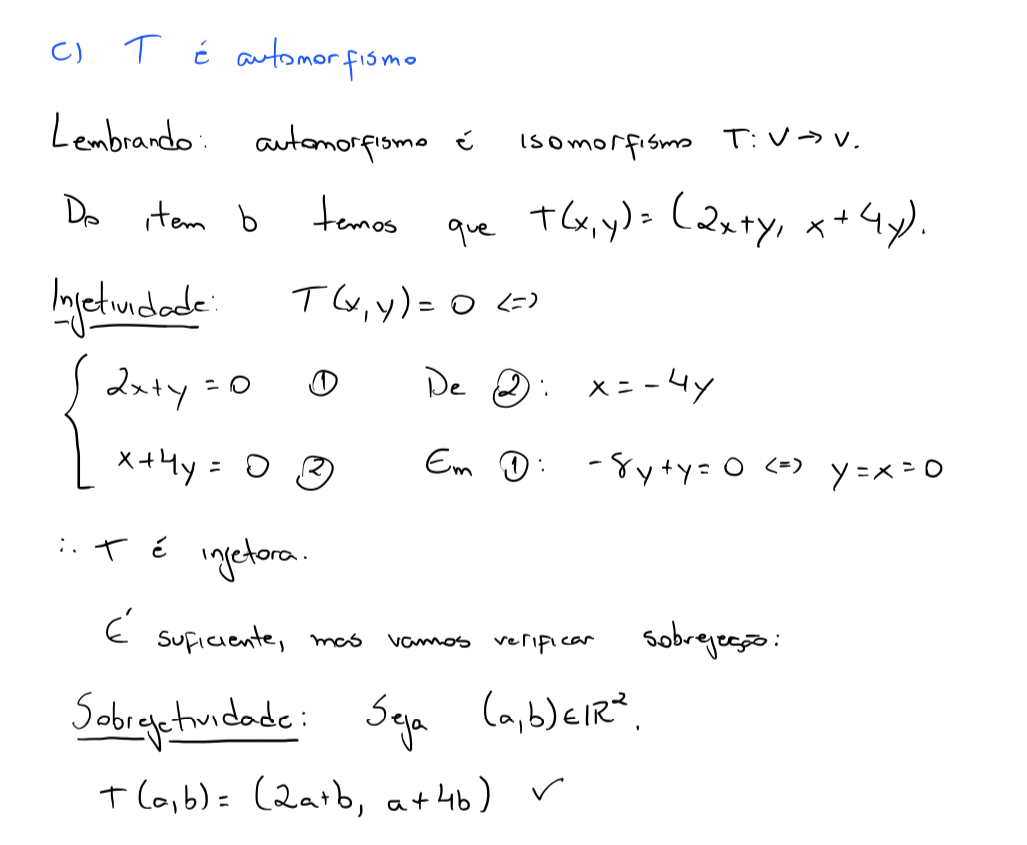 c) T é automorfismo
Lembrando: automorfismo é isomorfismo T: V → V.
Do item b temos que T(x,y) = (2x+y, x+4y).
Injetividade: T(x,y) = 0 <=>
{ 2x+y = 0 ① De ②: x = -4y
x+4y = 0 ② Em ①: -8y+y = 0 <=> y=x=0
∴ T é injetora.
É suficiente, mas vamos verificar sobrejeção:
Sobrejetividade: Seja (a,b) ∈ ℝ².
T(a,b) = (2a+b, a+4b) ✓